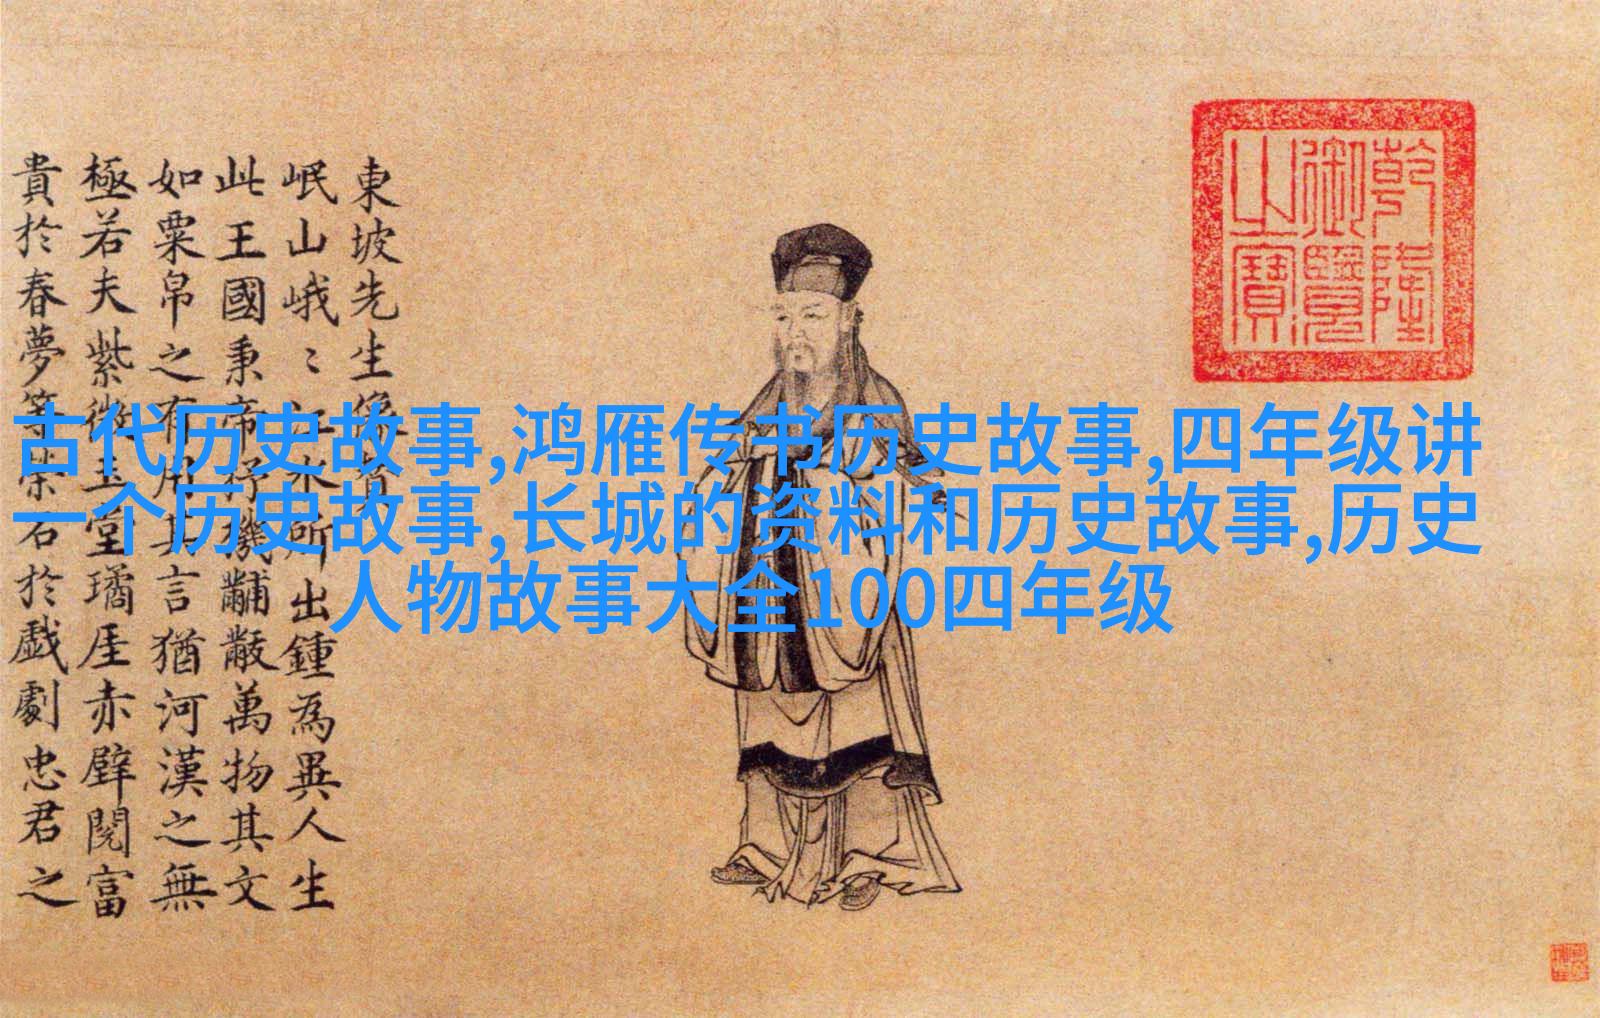 乾隆
御覽
之寶
東坡先生像
岷山峨〻江水所出鍾為異人生
此王國秉帝杼機黼黻萬物其文
如粟帛之有用其言猶河漢之無
極若夫紫微玉堂璚厓赤壁閱富
貴於春夢等榮於戲劇忠君之
古代历史故事,鸿雁传书历史故事,四年级讲
一个历史故事,长城的资料和历史故事,历史
人物故事大全100四年级